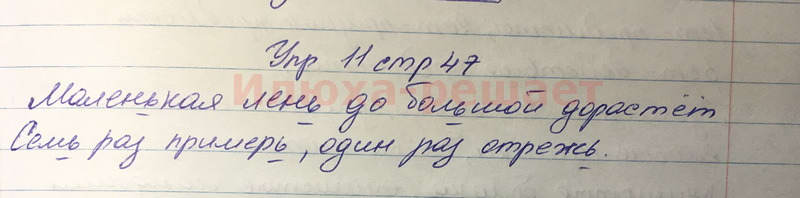 Упр 11 стр 47
Илюха-решает
Маленькая лень до большой дорастёт
Семь раз примерь, один раз отрежь.